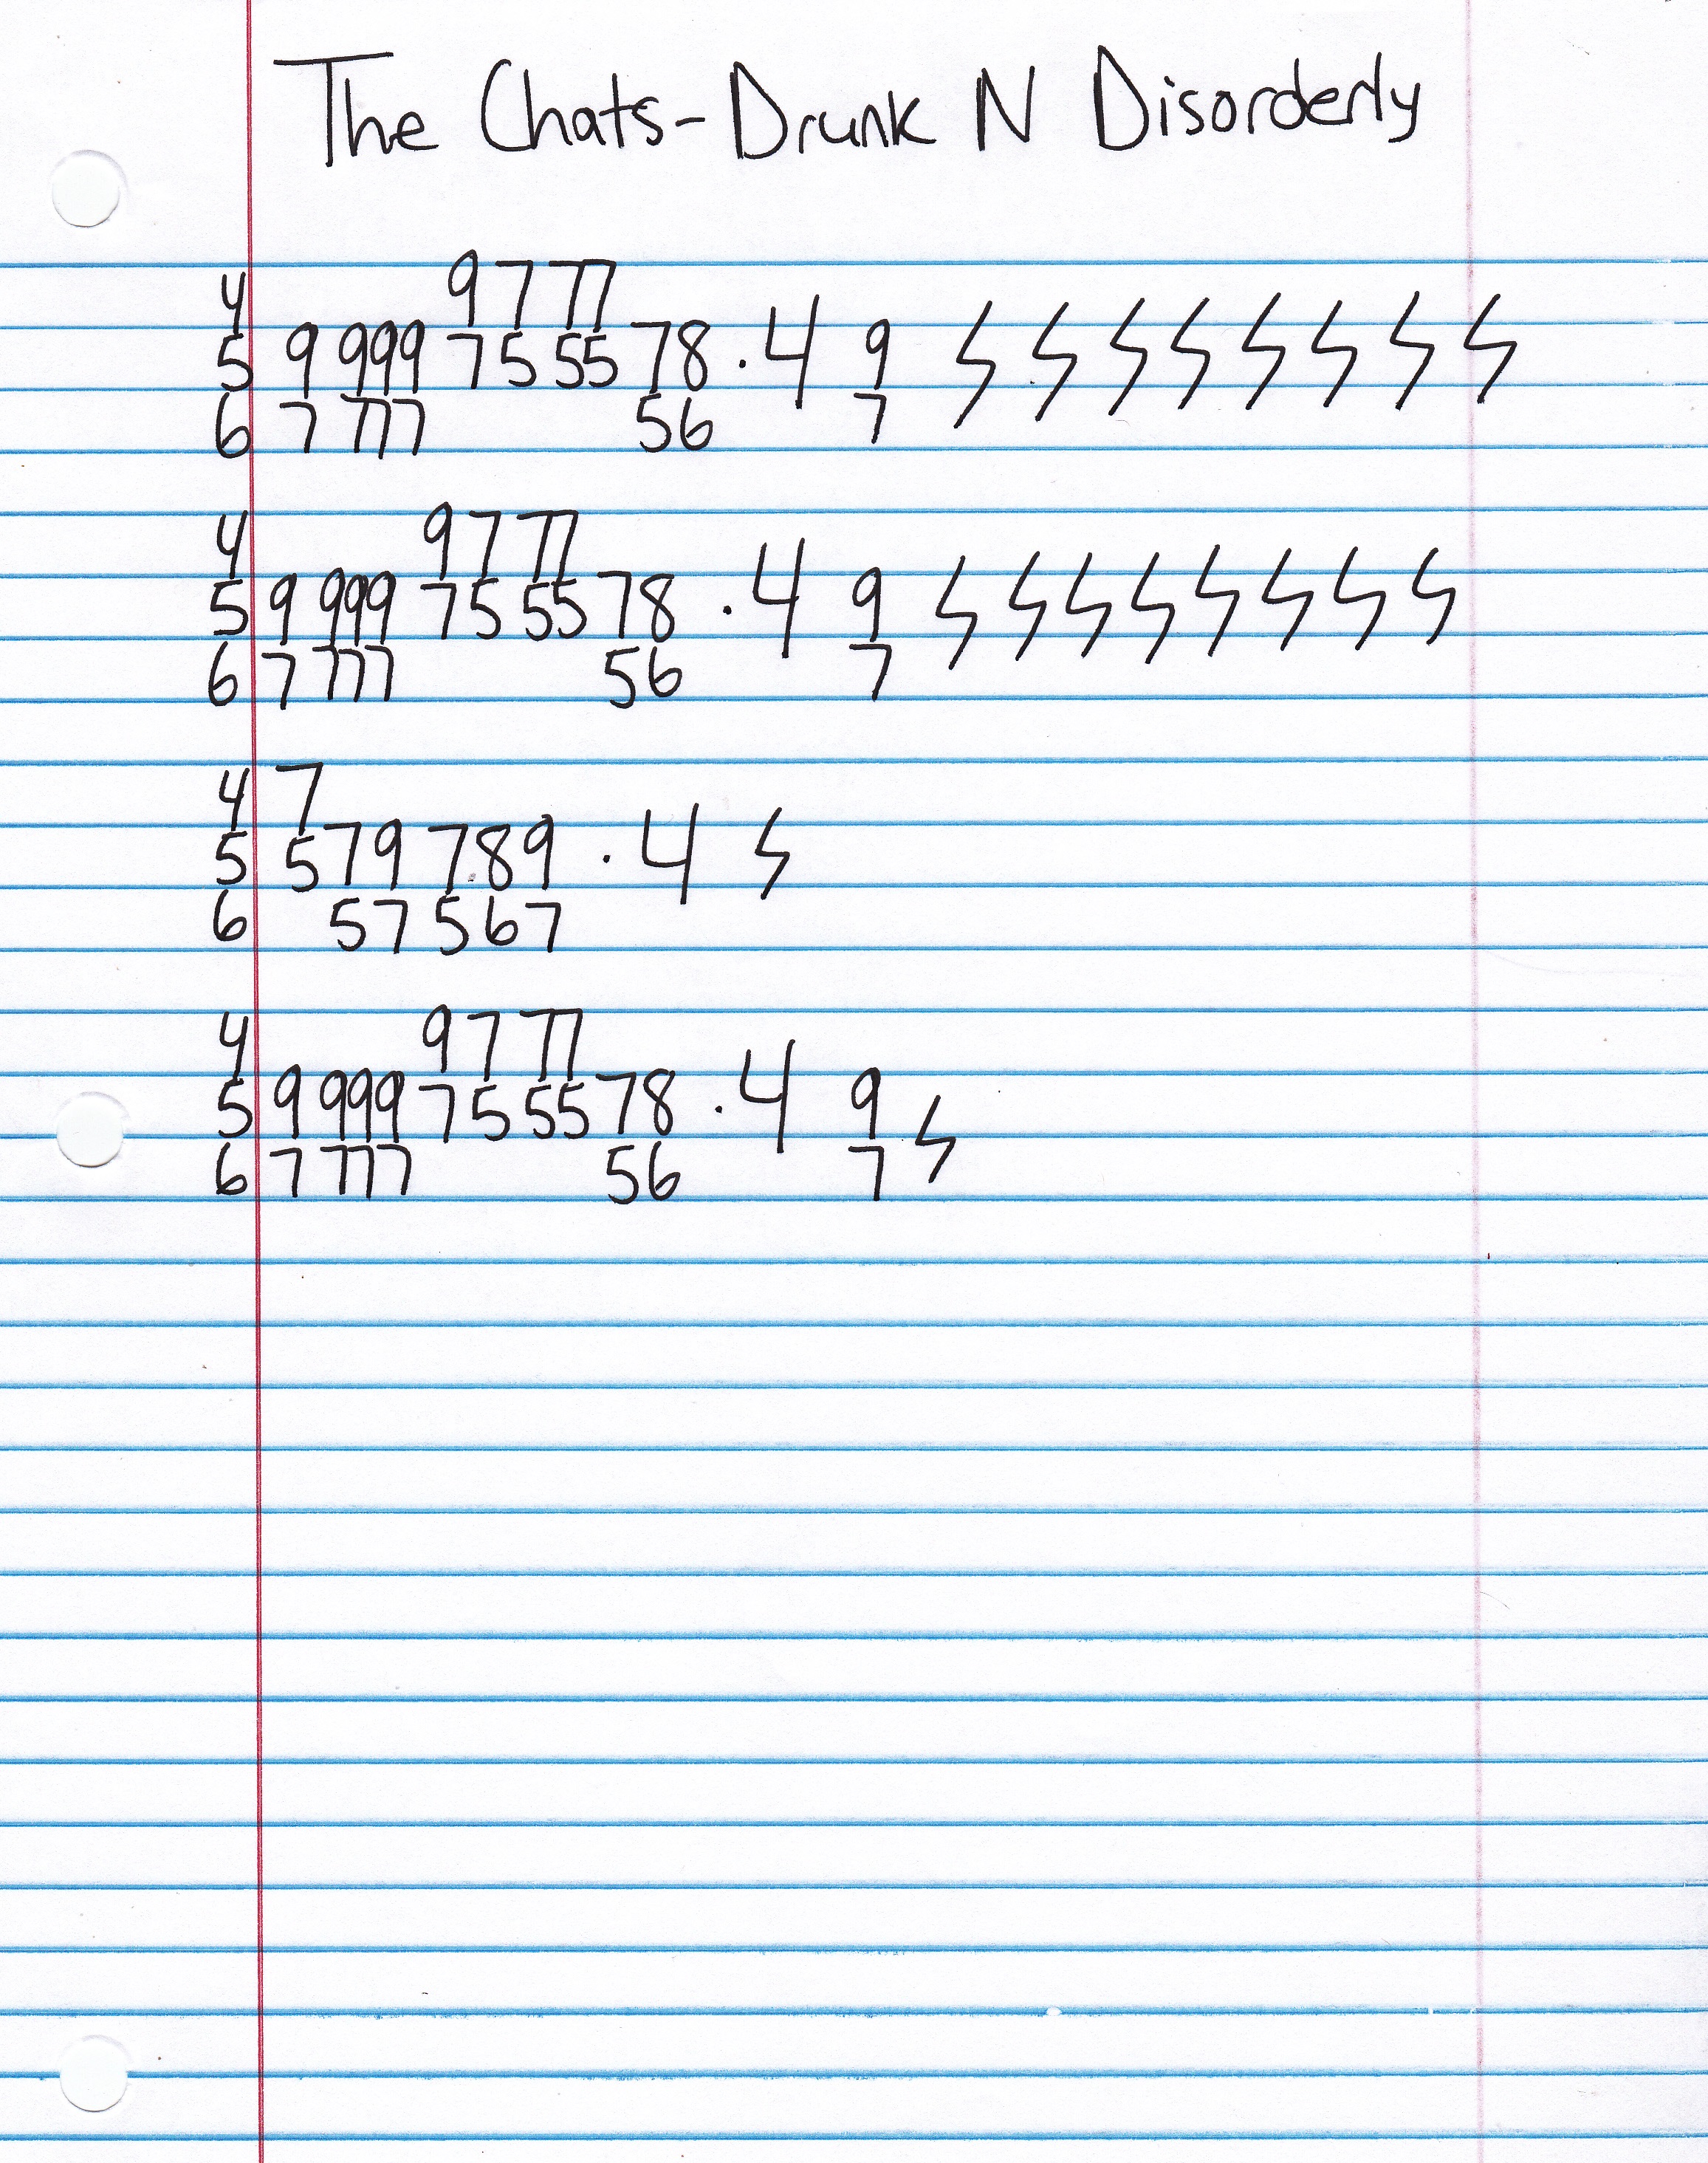 The Chats - Drunk N Disorderly
4 9 7 7 7
5 9 9 9 9 7 5 5 5 7 8 . 4 9
6 7 7 7 7 5 6 7
4 9 7 7 7
5 9 9 9 9 7 5 5 5 7 8 . 4 9
6 7 7 7 7 5 6 7
4 7
5 5 7 9 7 8 9 . 4
6 5 7 5 6 7
4 9 7 7 7
5 9 9 9 9 7 5 5 5 7 8 . 4 9
6 7 7 7 7 5 6 7